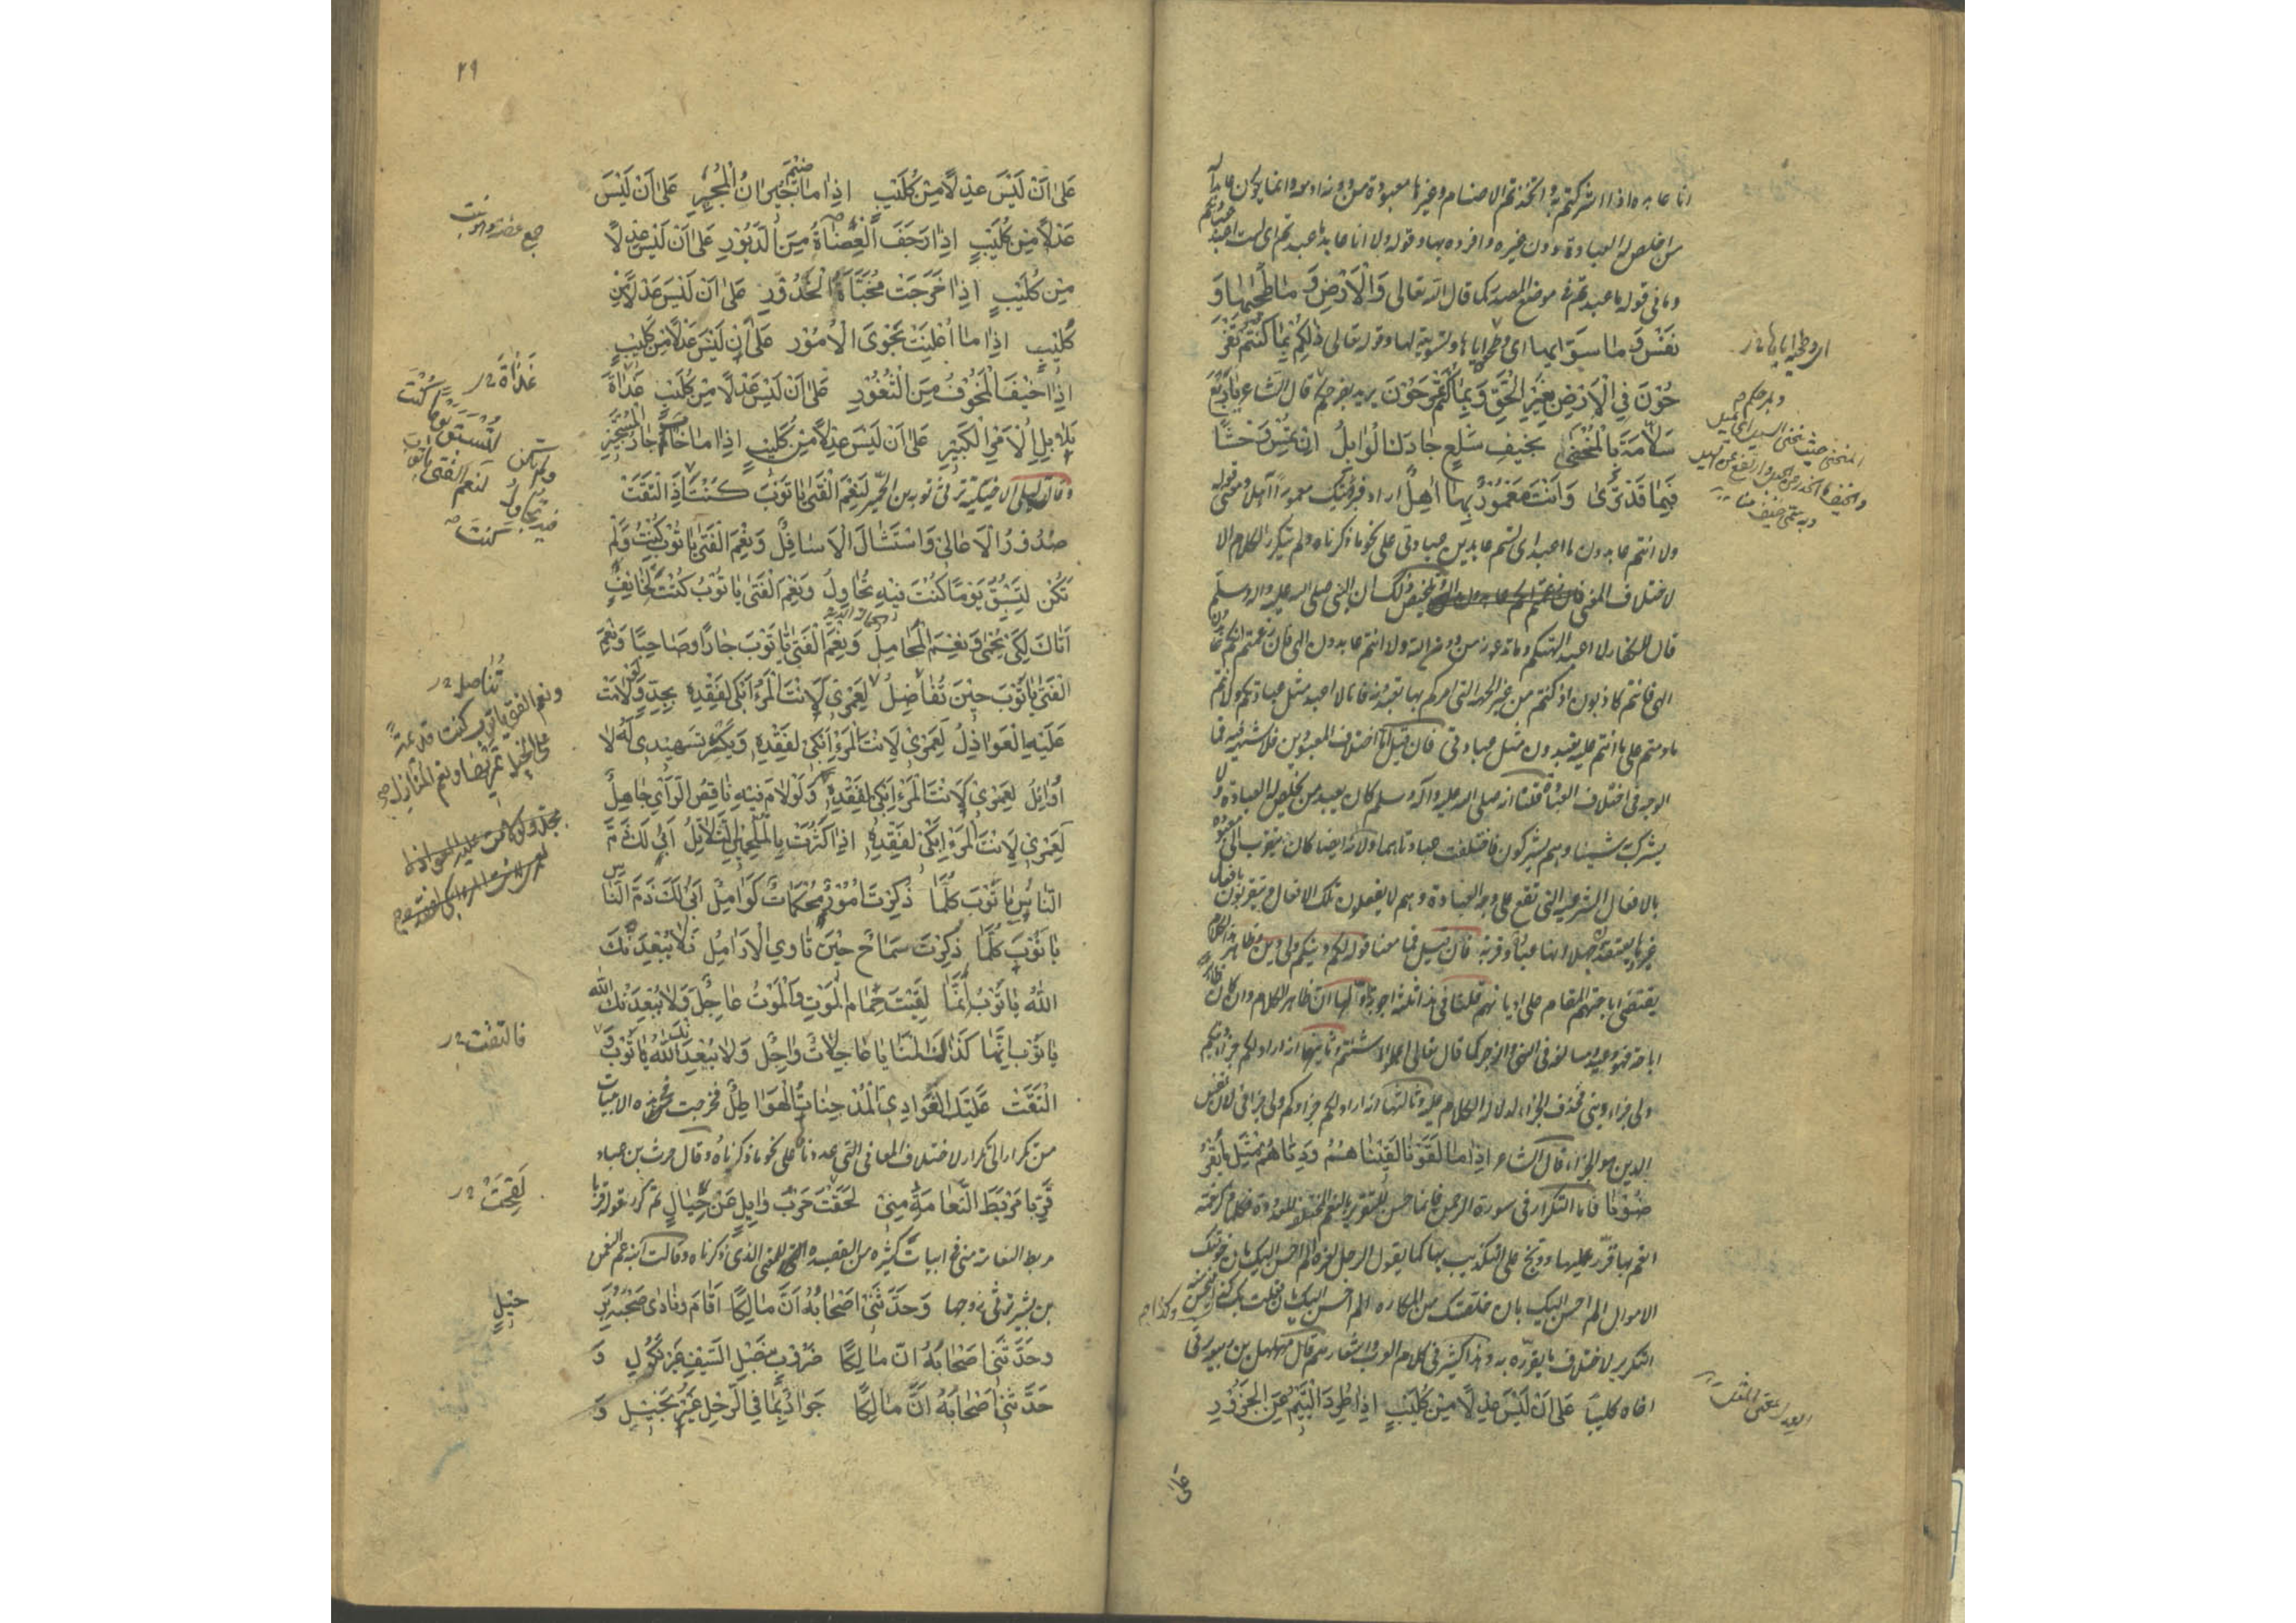 انا عابده اذا اشركتم به واتخذتم الاصنام وغيرها معبودة من دونه او معه وانما يكون عابدا له
من اخلص له العبادة دون غيره وافرده بها وقوله ولا انا عابد ما عبدتم اى لست اعبد عبادتكم
وما فى قوله ما عبدتم فى موضع المصدر كما قال الله تعالى وَالْاَرْضِ وَ مَا طَحٰيهَا وَ
نَفْسٍ وَ مَا سَوّٰيهَا اى وطحيه اياها وتسويته لها وقوله تعالى ذٰلِكُمْ بِمَا كُنْتُمْ تَفْرَ
حُوْنَ فِي الْاَرْضِ بِغَيْرِ الْحَقِّ وَ بِمَا كُنْتُمْ تَمْرَحُوْنَ يريد بفرحكم قال الشاعر يَا رَبْعَ
سَلَّامَةَ بِالْمُنْحَنٰى بِخَيْفِ سَلْعٍ جَادَكَ الْوَابِلُ اِنْ تُمْسِ وَحْشًا
فِيْمَا قَدْ تُرٰى وَاَنْتَ مَعْمُوْرٌ بِهَا اٰهِلُ اراد فرؤيتك معمورا آهلا ومعنى قوله
ولا انتم عابدون ما اعبد اى لستم عابدين عبادتى على نحو ما ذكرناه ولم يتكرر الكلام الا
لاختلاف المعنى وتلخيص ذلك ان النبى صلى الله عليه وآله وسلم
قال للكفار لا اعبد الهتكم وما تدعونه من دون الله ولا انتم عابدون الهى فان زعمتم انكم عابدون
الهى فانتم كاذبون اذ كنتم من غير الجهة التى امركم بها تعبدونه فانا لا اعبد مثل عبادتكم ولا انتم
ما دمتم على ما انتم عليه تعبدون مثل عبادتى فان قيل اما اختلاف المعبودين فلا شبهة فيه فما
الوجه فى اختلاف العبادة قلنا انه صلى الله عليه وآله وسلم كان يعبد من يخلص له العبادة ولا
يشرك به شيئا وهم يشركون فاختلفت عبادتاهما ولانه ايضا كان يتقرب الى معبوده
بالافعال الشرعية التى تقع على وجه العبادة وهم لا يفعلون تلك الافعال ويتقربون بافعال
غيرها يعتقدون جهلا انها عبادة وقربة فان قيل فما معنى قوله لكم دينكم ولى دين وظاهر هذا الكلام
يقتضى اباحتهم المقام على اديانهم قلنا فى هذا ثلثة اجوبة اولها ان ظاهر الكلام وان كان ظاهره
اباحة فهو وعيد ومبالغة فى النهى والزجر كما قال تعالى اعملوا ما شئتم وثانيها انه اراد لكم جزاء دينكم
ولى جزاء دينى فحذف الجزاء لدلالة الكلام عليه وثالثها انه اراد لكم جزاؤكم ولى جزائى لان نفس
الدين هو الجزاء قال الشاعر اِذَا مَا لَقُوْنَا لَقِيْنَاهُمْ وَدِنَّاهُمْ مِثْلَ مَا يُقْرِ
ضُوْنَا فاما التكرار فى سورة الرحمن فانما حسن للتقرير بالنعم المختلفة المعدودة فكلما ذكر نعمة
انعم بها قرّر عليها ووبخ على التكذيب بها كما يقول الرجل لغيره الم احسن اليك بان خولتك
الاموال الم احسن اليك بان خلصتك من المكاره الم احسن اليك بان فعلت بك كذا وكذا فيحسن منه
التكرير لاختلاف ما يقرره به وهذا كثير فى كلام العرب واشعارهم قال مهلهل بن ربيعة يرثى
اخاه كليبا عَلٰى اَنْ لَيْسَ عِدْلًا مِنْ كُلَيْبٍ اِذَا طُرِدَ الْيَتِيْمُ عَنِ الْجَزُوْرِ
عَلٰى
اى وطحيه اياها
وبمرحكم
العدل بمعنى المثل
٢٩
عَلٰى اَنْ لَيْسَ عِدْلًا مِنْ كُلَيْبٍ اِذَا مَا ضِيْمَ جِيْرَانُ الْمُجِيْرِ عَلٰى اَنْ لَيْسَ
عِدْلًا مِنْ كُلَيْبٍ اِذَا رَجَفَ الْعِضَاةُ مِنَ الدَّبُوْرِ عَلٰى اَنْ لَيْسَ عِدْلًا
مِنْ كُلَيْبٍ اِذَا خَرَجَتْ مُخَبَّاَةُ الْخُدُوْرِ عَلٰى اَنْ لَيْسَ عِدْلًا مِنْ
كُلَيْبٍ اِذَا مَا اُعْلِنَتْ نَجْوَى الْاُمُوْرِ عَلٰى اَنْ لَيْسَ عِدْلًا مِنْ كُلَيْبٍ
اِذَا خِيْفَ الْمَخُوْفُ مِنَ الثُّغُوْرِ عَلٰى اَنْ لَيْسَ عِدْلًا مِنْ كُلَيْبٍ غَدَاةَ
بَلَابِلِ الْاَمْرِ الْكَبِيْرِ عَلٰى اَنْ لَيْسَ عِدْلًا مِنْ كُلَيْبٍ اِذَا مَا خَامَ جَارُ الْمُسْتَجِيْرِ
وقالت ليلى الاخيلية ترثى توبة بن الحمير لَنِعْمَ الْفَتٰى يَا تَوْبَ كُنْتَ اِذَا الْتَقَتْ
صُدُوْرُ الْاَعَالِيْ وَاسْتَشَالَ الْاَسَافِلُ وَنِعْمَ الْفَتٰى يَا تَوْبُ كُنْتَ وَلَمْ
تَكُنْ لِتُسْبَقَ يَوْمًا كُنْتَ فِيْهِ تُحَاوِلُ وَنِعْمَ الْفَتٰى يَا تَوْبُ كُنْتَ لِخَائِفٍ
اَتَاكَ لِكَيْ يُحْمٰى وَنِعْمَ الْمُجَامِلُ وَنِعْمَ الْفَتٰى يَا تَوْبَ جَارًا وَصَاحِبًا وَنِعْمَ
الْفَتٰى يَا تَوْبَ حِيْنَ تُفَاضِلُ لَعَمْرِيْ لَاَنْتَ الْمَرْءُ اَبْكِيْ لِفَقْدِهِ بِجِدٍّ وَلَوْ لَامَتْ
عَلَيْهِ الْعَوَاذِلُ لَعَمْرِيْ لَاَنْتَ الْمَرْءُ اَبْكِيْ لِفَقْدِهِ وَيَكْثُرُ تَسْهِيْدِيْ لَهُ لَا
اُوَائِلُ لَعَمْرِيْ لَاَنْتَ الْمَرْءُ اَبْكِيْ لِفَقْدِهِ وَلَوْ لَامَ فِيْهِ نَاقِصُ الرَّأْيِ جَاهِلُ
لَعَمْرِيْ لَاَنْتَ الْمَرْءُ اَبْكِيْ لِفَقْدِهِ اِذَا كَثُرَتْ بِالْمُلْجِمِيْنَ التَّلَاتِلُ اَبٰى لَكَ ذَمَّ
النَّاسِ يَا تَوْبَ كُلَّمَا ذُكِرَتْ اُمُوْرٌ مُحْكَمَاتٌ كَوَامِلُ اَبٰى لَكَ ذَمَّ النَّاسِ
يَا تَوْبَ كُلَّمَا ذُكِرْتَ سَمَاحٌ حِيْنَ تَاوِي الْاَرَامِلُ فَلَا يُبْعِدَنْكَ
اللّٰهُ يَا تَوْبُ اِنَّمَا لَقِيْتَ حِمَامَ الْمَوْتِ وَالْمَوْتُ عَاجِلُ وَلَا يُبْعِدَنْكَ اللّٰهُ
يَا تَوْبَ اِنَّمَا كَذَاكَ الْمَنَايَا عَاجِلَاتٌ وَاٰجِلُ وَلَا يُبْعِدَنْكَ اللّٰهُ يَا تَوْبُ وَ
الْتَقَتْ عَلَيْكَ الْغَوَادِي الْمُدْجِنَاتُ الْهَوَاطِلُ فخرجت فى هذه الابيات
من تكرار الى تكرار لاختلاف المعانى التى عددتها على نحو ما ذكرناه وقال حرث بن عباد
قَرِّبَا مَرْبَطَ النَّعَامَةِ مِنِّيْ لَقِحَتْ حَرْبُ وَائِلٍ عَنْ حِيَالِ ثم كرر قوله قربا
مربط النعامة منى فى ابيات كثيرة من القصيدة للمعنى الذى ذكرناه وقالت ابنة عم النعمن
بن بشير ترثى زوجها وَحَدَّثَنِيْ اَصْحَابُهُ اَنَّ مَالِكًا اَقَامَ وَنَادٰى صَحْبُهُ بِرَ
وَحَدَّثَنِيْ اَصْحَابُهُ اَنَّ مَالِكًا ضَرُوْبٌ بِنَصْلِ السَّيْفِ غَيْرُ نَكُوْلِ وَ
حَدَّثَنِيْ اَصْحَابُهُ اَنَّ مَالِكًا جَوَادٌ بِمَا فِي الرَّحْلِ غَيْرُ بَخِيْلِ وَ
غَدَاةَ
تُنَاضِلُ
فالتقت
لَقِحَتْ
حِيْلٍ